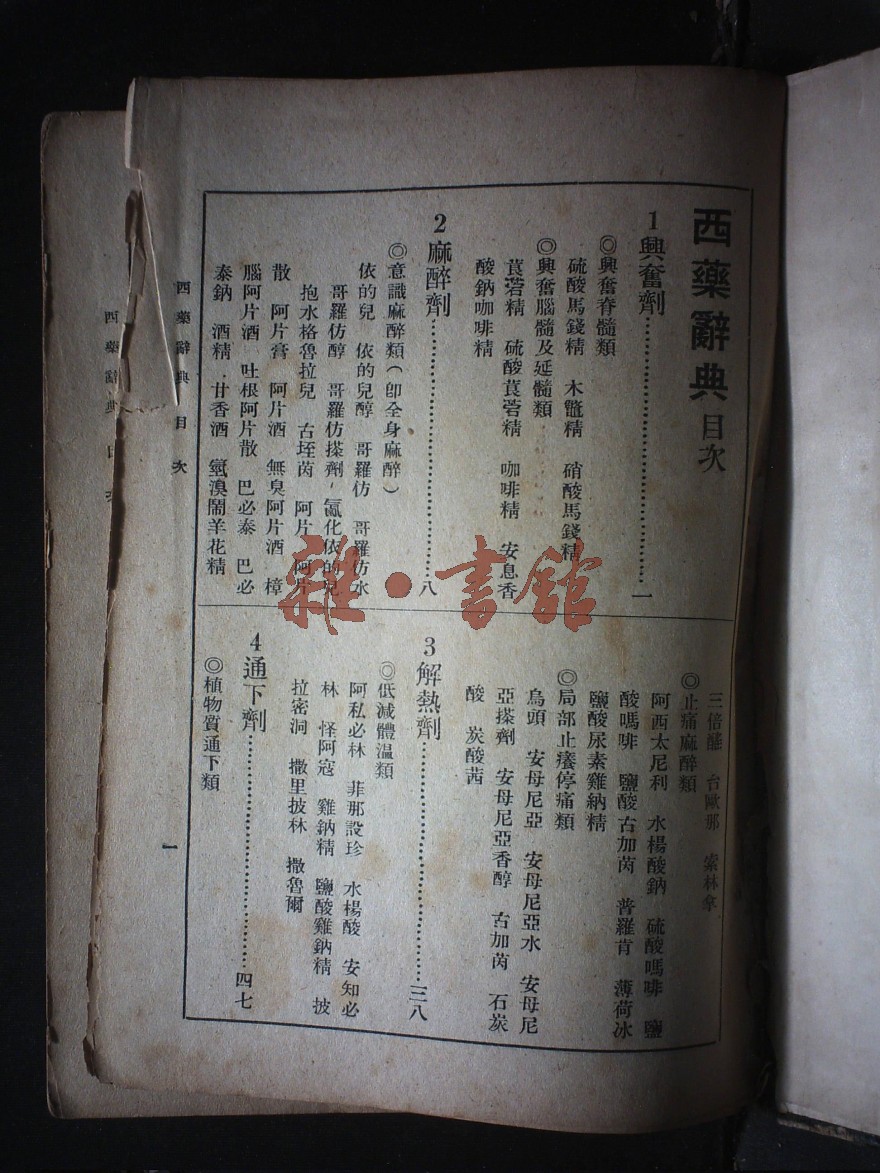 西藥辭典目次
1 興奮劑……一
◎興奮脊髓類
硫酸馬錢精 木鼈精 硝酸馬錢精
◎興奮腦髓及延髓類
莨菪精 硫酸莨菪精 咖啡精 安息香
酸鈉咖啡精
2 麻醉劑……八
◎意識麻醉類(卽全身麻醉)
依的兒 依的兒醇 哥羅仿 哥羅仿水
哥羅仿醇 哥羅仿搽劑 氯化依的兒
抱水格魯拉兒 古垤茵 阿片 阿片
散 阿片膏 阿片酒 無臭阿片酒 樟
腦阿片酒 吐根阿片散 巴必泰 巴必
泰鈉 酒精 甘香酒 氫溴鬧羊花精
三倍醛 台歐那 索林拿
◎止痛麻醉類
阿西太尼利 水楊酸鈉 硫酸嗎啡 鹽
酸嗎啡 鹽酸古加茵 普羅肯 薄荷冰
鹽酸尿素雞納精
◎局部止癢停痛類
烏頭 安母尼亞 安母尼亞水 安母尼
亞搽劑 安母尼亞香醇 古加茵 石炭
酸 炭酸茜
3 解熱劑……三八
◎低減體溫類
阿私必林 菲那設珍 水楊酸 安知必
林 怪阿寇 雞鈉精 鹽酸雞鈉精 披
拉密洞 撒里披林 撒魯爾
4 通下劑……四七
◎植物質通下類
西藥辭典 目次
一
西藥辭典 目次
雜·書館